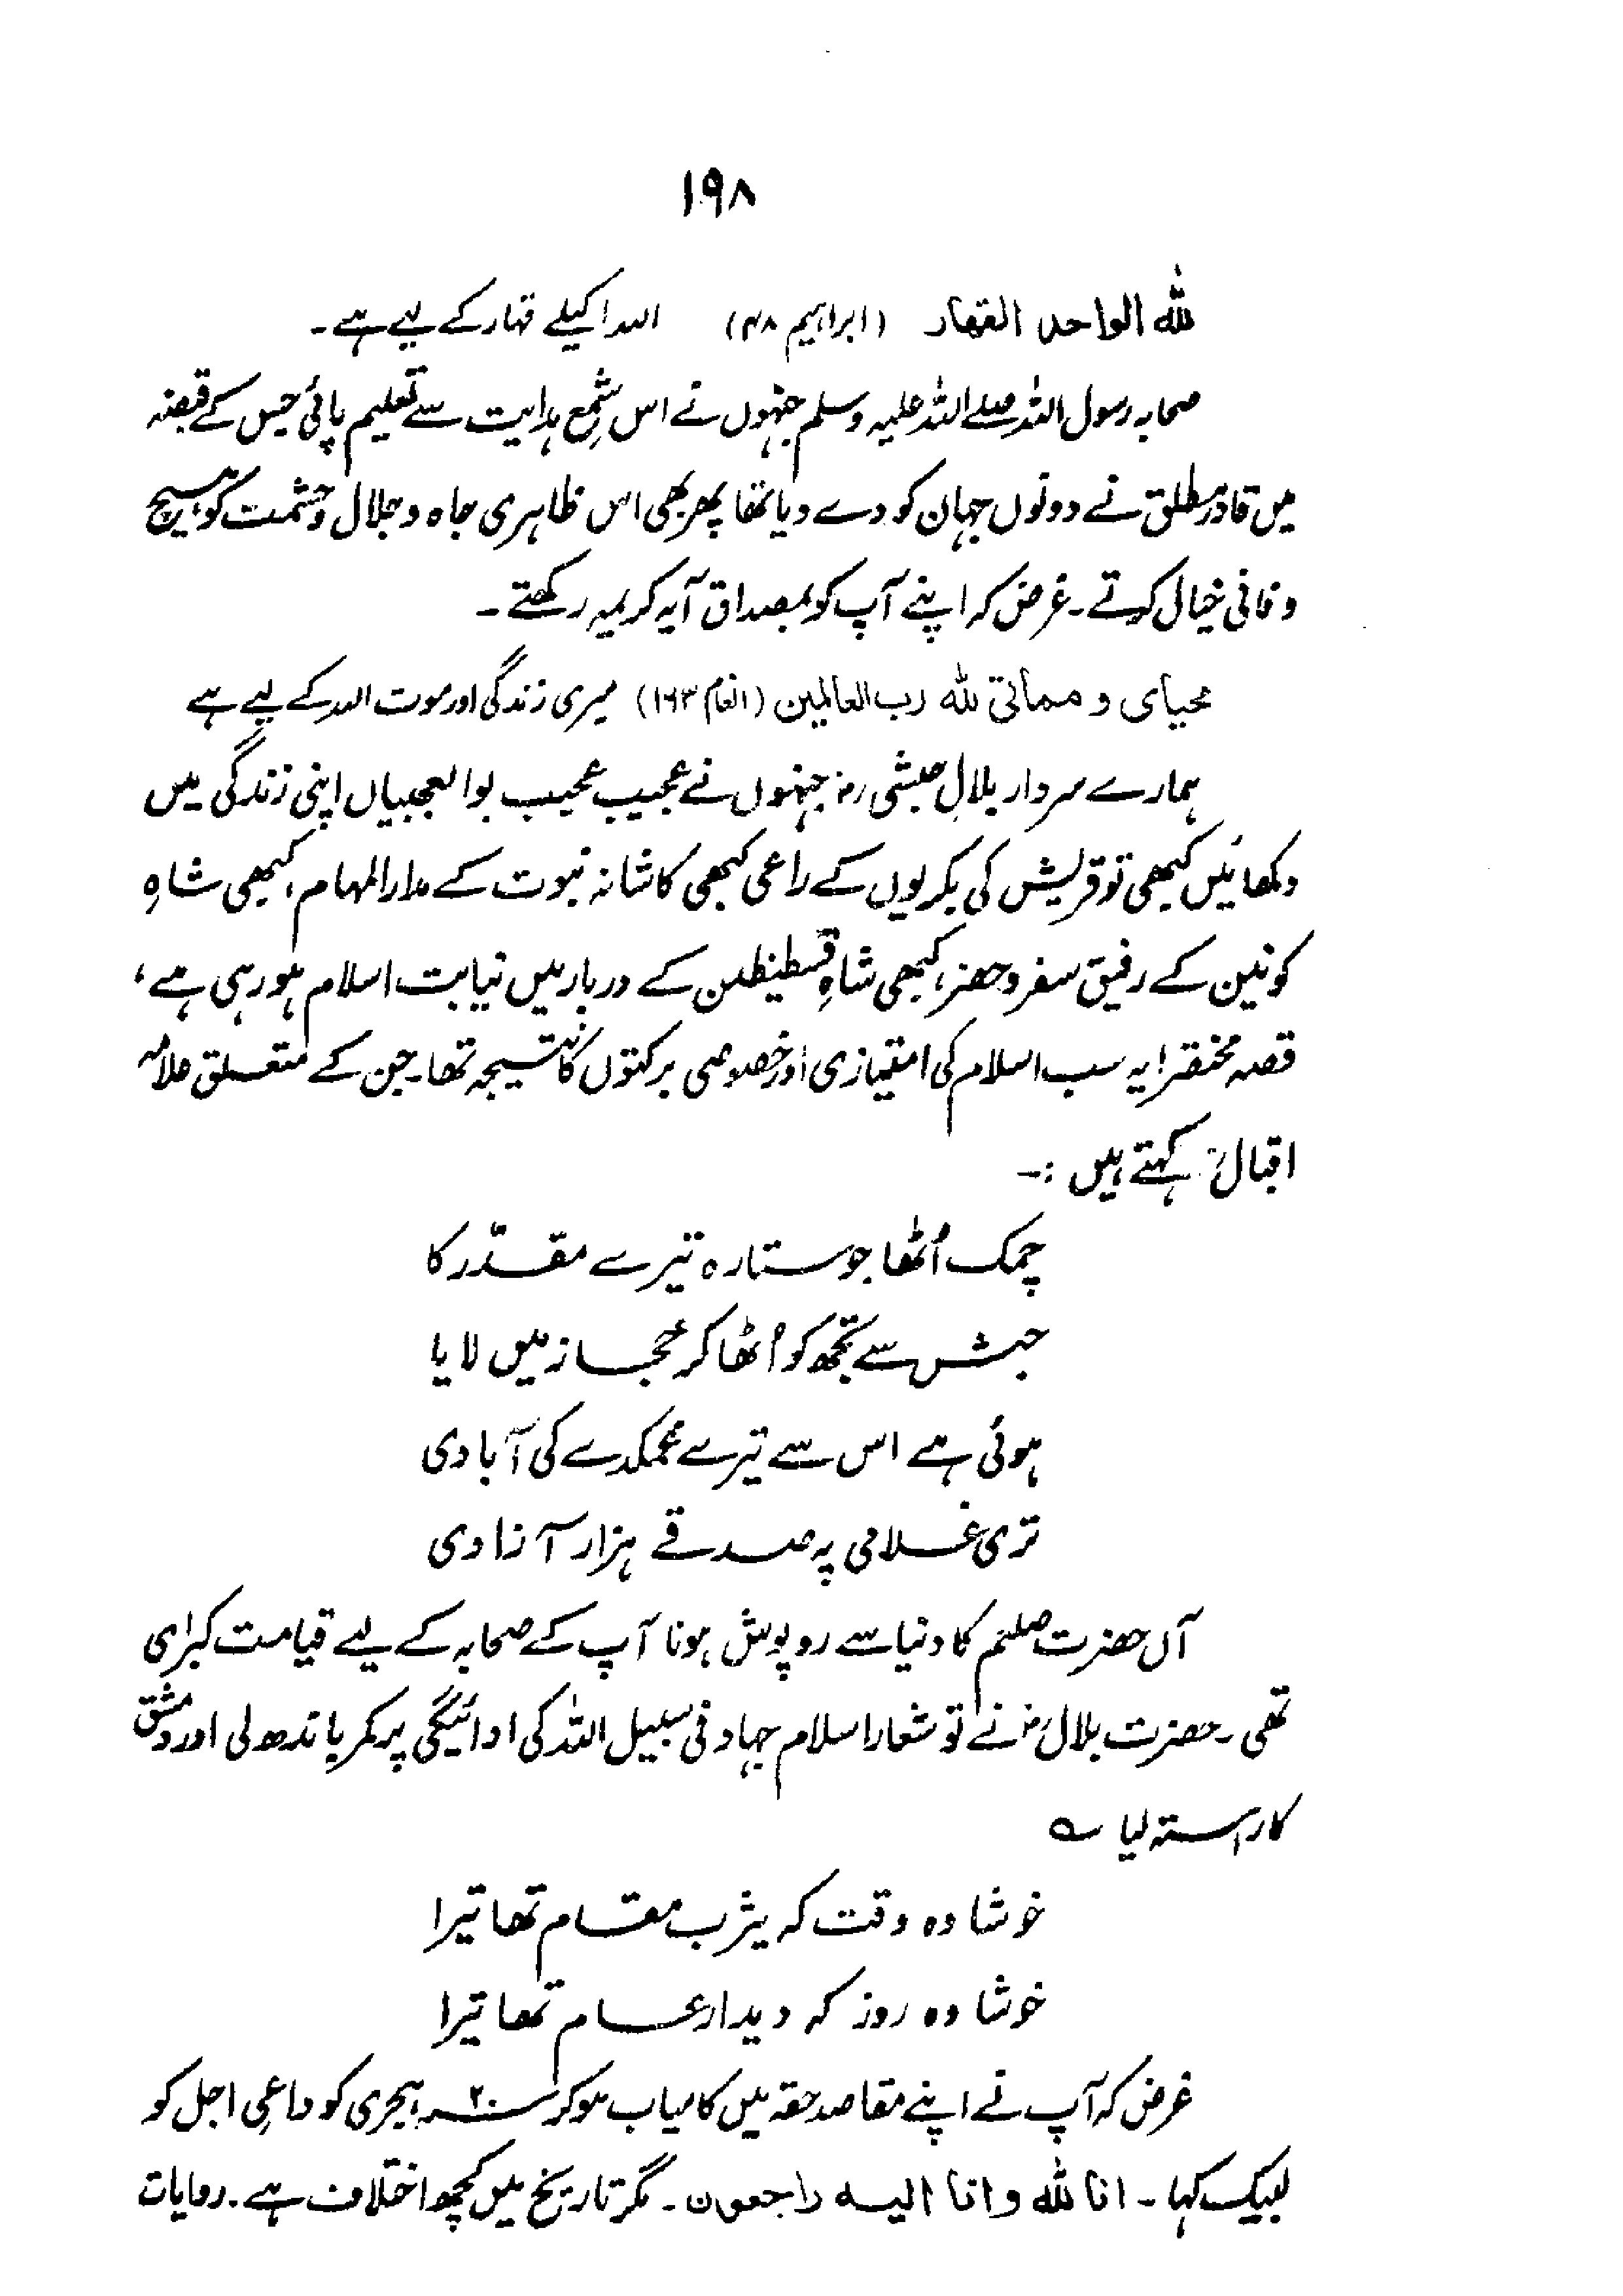 ۱۹۸
للہ الواحد القھار (ابراہیم ۴۸) اللہ اکیلے قہار کے لیے ہے۔
صحابہ رسول اللہ صلے اللہ علیہ وسلم جنہوں نے اس شمعِ ہدایت سے تعلیم پائی جس کے قبضہ
میں قادرِ مطلق نے دونوں جہان کو دے دیا تھا پھر بھی اس ظاہری جاہ و جلال و حشمت کو ہیچ
و فانی خیال کرتے۔ غرض کہ اپنے آپ کو بمصداق آیہ کریمہ رکھتے۔
محیای و مماتی للہ رب العالمین (انعام ۱۶۳) میری زندگی اور موت اللہ کے لیے ہے
ہمارے سردار بلالِ حبشی رضہ جنہوں نے عجیب عجیب بوالعجبیاں اپنی زندگی میں
دکھائیں کبھی تو قریش کی بکریوں کے راعی کبھی کاشانہ نبوت کے مدار المہام، کبھی شاہِ
کونین کے رفیق سفر و حضر، کبھی شاہِ قسطنطن کے دربار میں نیابت اسلام ہو رہی ہے،
قصہ مختصر ایہ سب اسلام کی امتیازی اور خصوصی برکتوں کا نتیجہ تھا۔ جن کے متعلق علامہ
اقبالؒ کہتے ہیں :۔
چمک اُٹھا جو ستارہ تیرے مقدّر کا
حبش سے تجھ کو اُٹھا کر حجاز میں لایا
ہوئی ہے اس سے تیرے غمکدے کی آبادی
تری غلامی پہ صدقے ہزار آزادی
آں حضرت صلعم کا دنیا سے روپوش ہونا آپ کے صحابہ کے لیے قیامت کبرٰی
تھی۔ حضرت بلالؓ نے تو شعار اسلام جہاد فی سبیل اللہ کی ادائیگی پر کمر باندھ لی اور دمشق
کا راستہ لیا ؎
خوشا وہ وقت کہ یثرب مقام تھا تیرا
خوشا وہ روز کہ دیدار عام تھا تیرا
غرض کہ آپ نے اپنے مقاصد حقہ میں کامیاب ہو کر سنہ ۲۰ ہجری کو داعیِ اجل کو
لبیک کہا۔ انا للہ و انا الیہ راجعون۔ مگر تاریخ میں کچھ اختلاف ہے۔ روایات